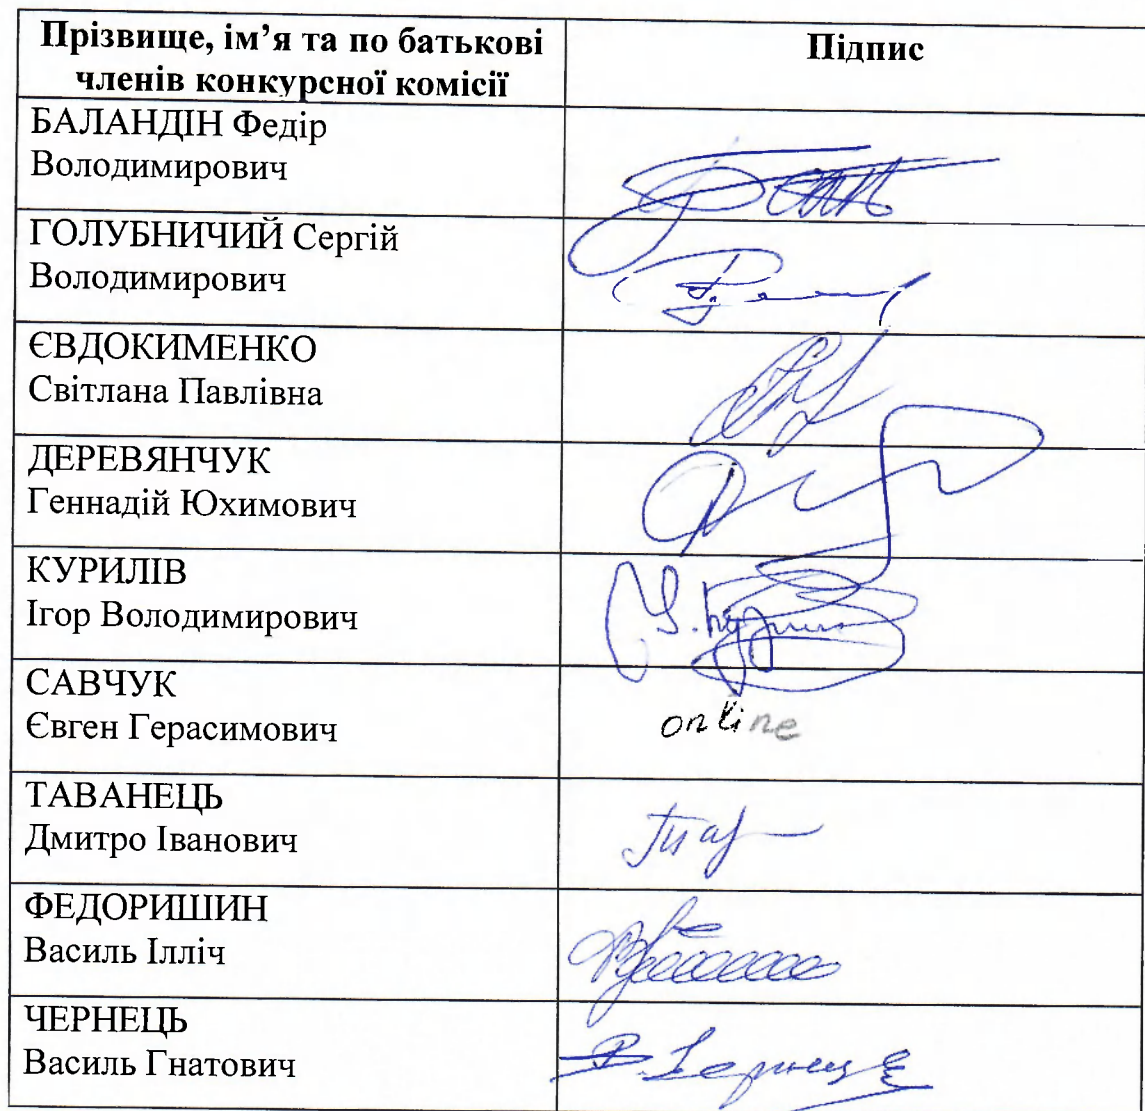 Прізвище, ім’я та по батькові
членів конкурсної комісії
Підпис
БАЛАНДІН Федір
Володимирович
ГОЛУБНИЧИЙ Сергій
Володимирович
ЄВДОКИМЕНКО
Світлана Павлівна
ДЕРЕВЯНЧУК
Геннадій Юхимович
КУРИЛІВ
Ігор Володимирович
САВЧУК
Євген Герасимович
online
ТАВАНЕЦЬ
Дмитро Іванович
ФЕДОРИШИН
Василь Ілліч
ЧЕРНЕЦЬ
Василь Гнатович